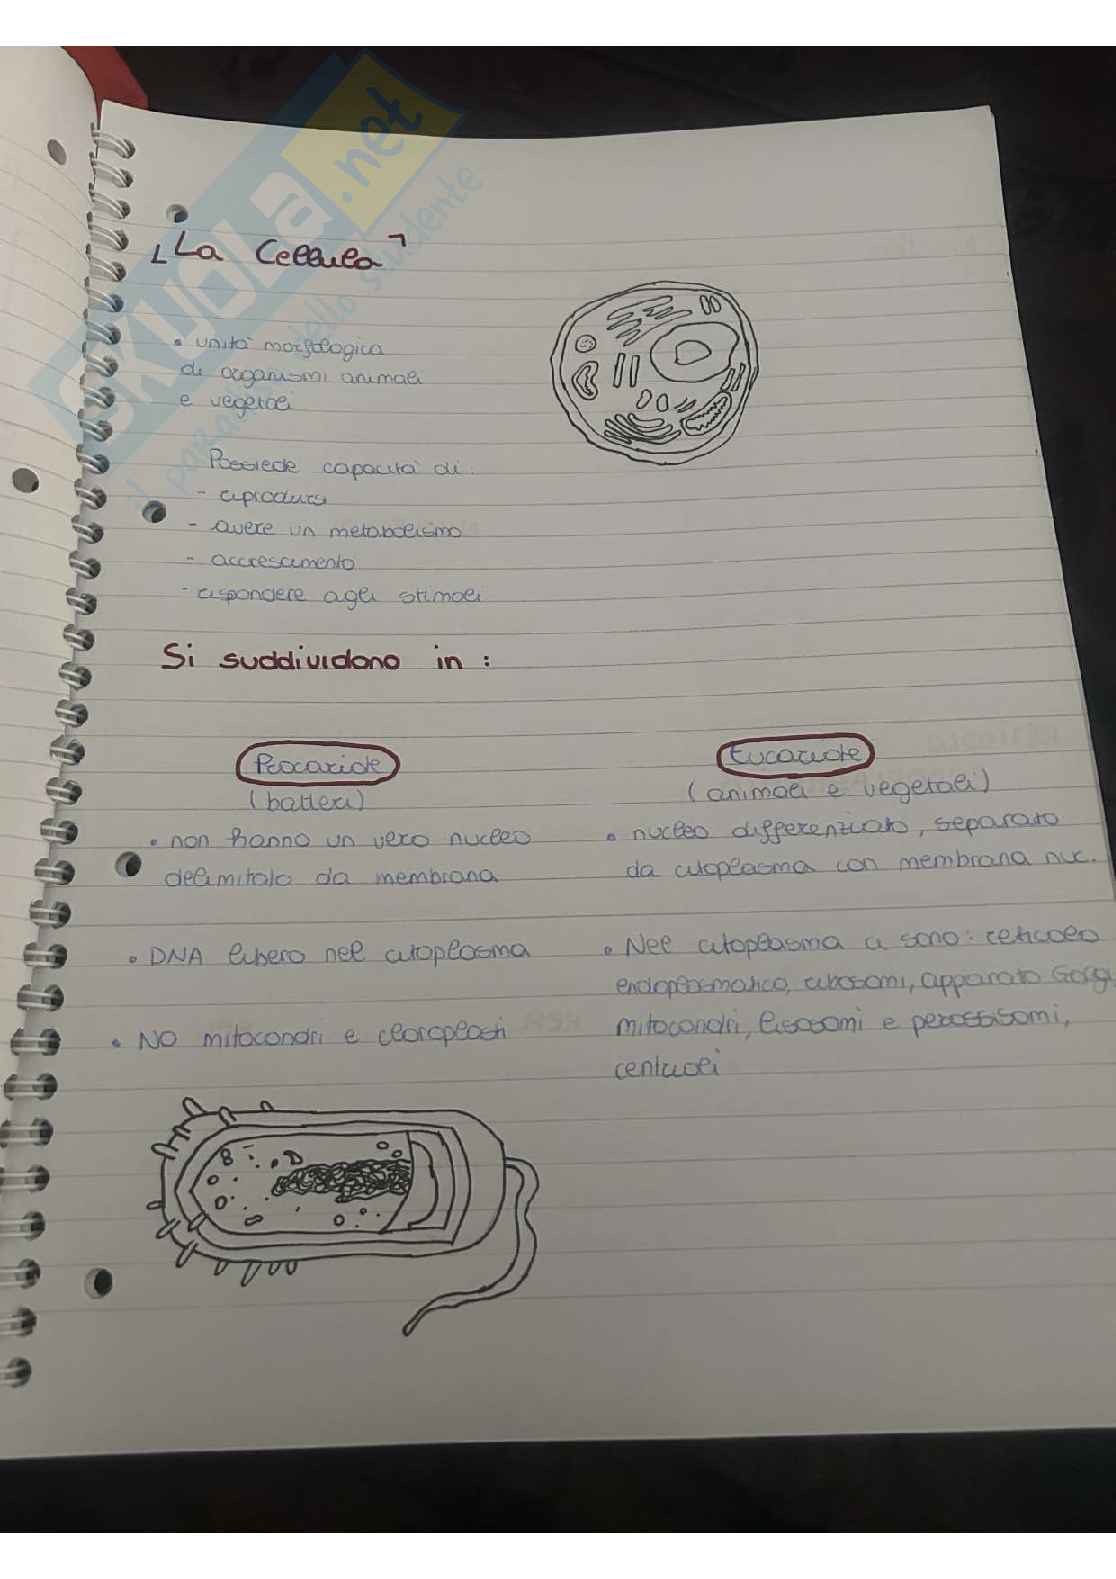 La Cellula
• unità morfologica
di organismi animali
e vegetali
Possiede capacità di:
- riprodursi
- avere un metabolismo
- accrescimento
- rispondere agli stimoli
Si suddividono in :
Procariote
(batteri)
• non hanno un vero nucleo
delimitato da membrana
• DNA libero nel citoplasma
• NO mitocondri e cloroplasti
Eucariote
(animali e vegetali)
• nucleo differenziato, separato
da citoplasma con membrana nuc.
• Nel citoplasma ci sono: reticolo
endoplasmatico, ribosomi, apparato Golgi,
mitocondri, lisosomi e perossisomi,
centrioli
SKUOLA.net
il paradiso dello studente